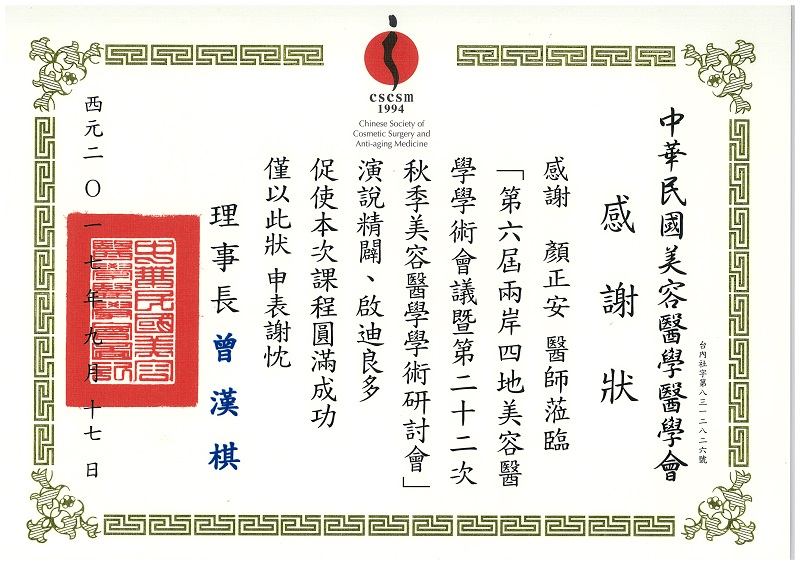 cscsm
1994
Chinese Society of
Cosmetic Surgery and
Anti-aging Medicine
中華民國美容醫學醫學會
台內社字第八三一二八二六號
感謝狀
感謝 顏正安 醫師蒞臨
「第六屆兩岸四地美容醫
學學術會議暨第二十二次
秋季美容醫學學術研討會」
演說精闢、啟迪良多
促使本次課程圓滿成功
僅以此狀 申表謝忱
理事長 曾漢棋
西元二〇一七年九月十七日